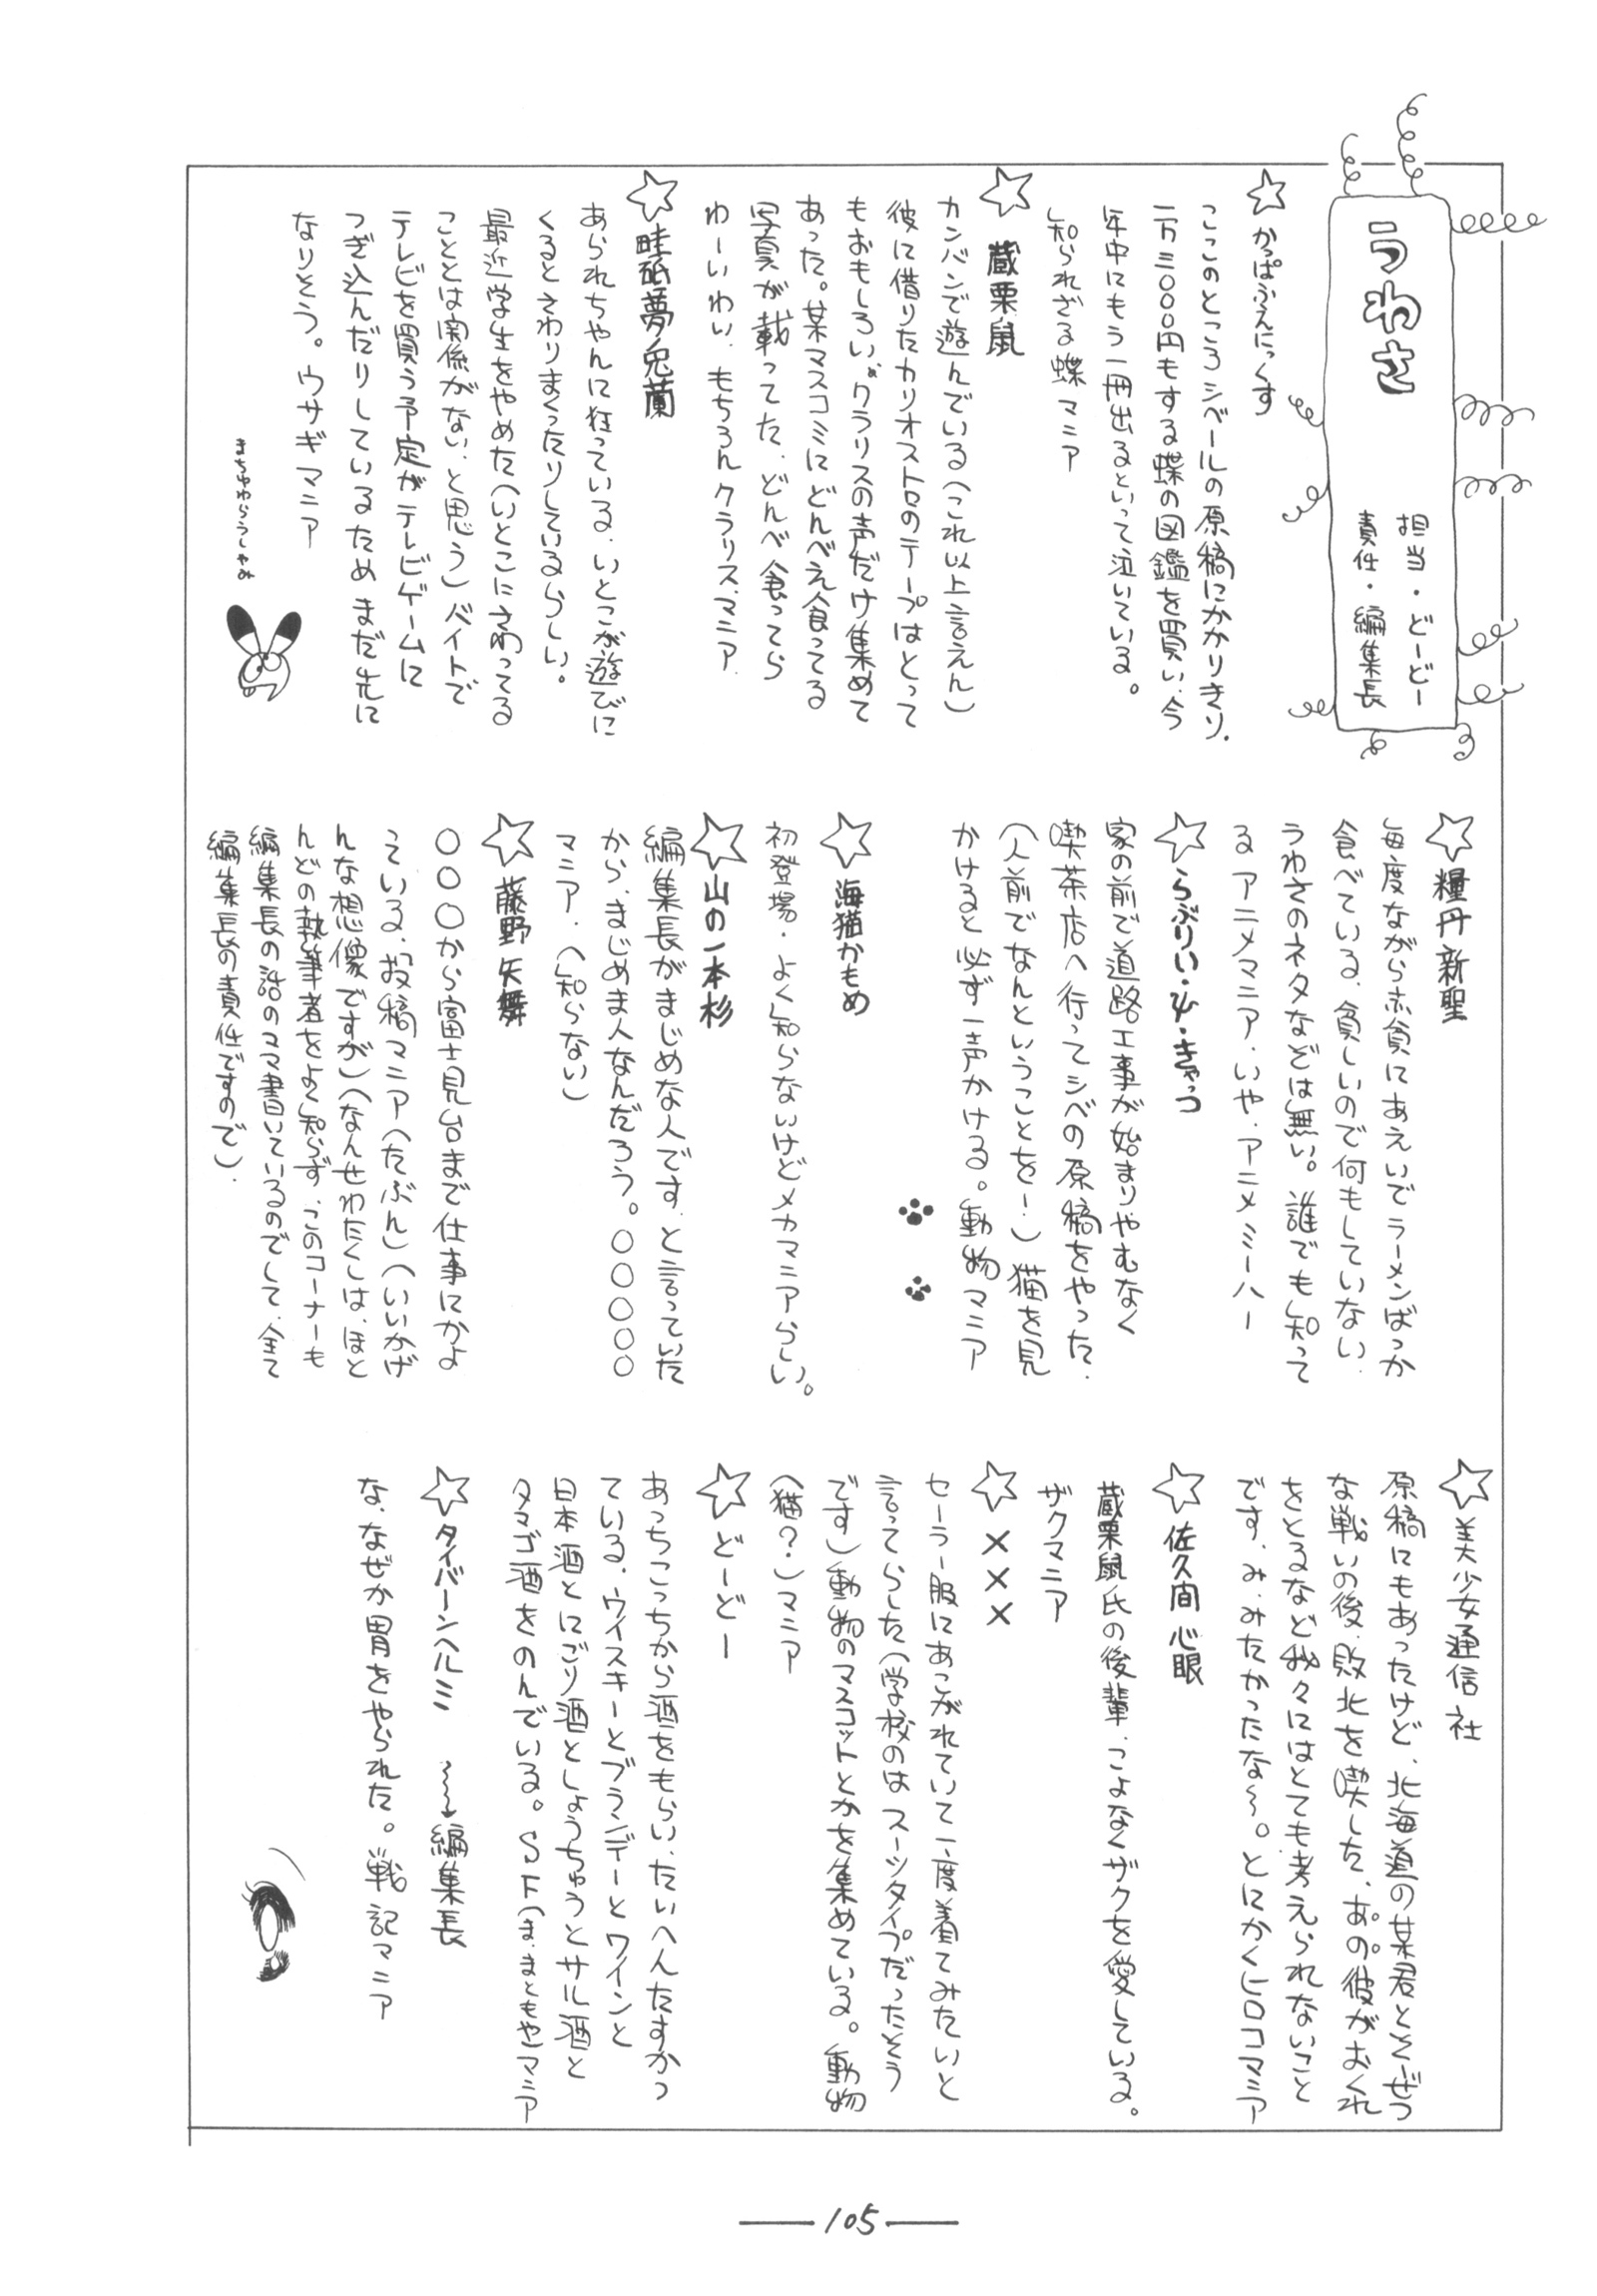 うわさ
担当・どーどー
責任・編集長
☆かっぱふぇにっくす
ここのところシベールの原稿にかかりきり.
一万三〇〇〇円もする蝶の図鑑を買い、今
年中にもう一冊出るといって泣いている。
知られざる蝶マニア
☆蔵栗鼠
カンバンで遊んでいる(これ以上言えん)
彼に借りたカリオストロのテープはとって
もおもしろい。"クラリスの声だけ集めて
あった。某マスコミにどんべえ食ってる
写真が載ってた、どんべ食ってら
わーいわい、もちろんクラリスマニア.
☆畦砥夢兎蘭
あられちゃんに狂っている、いとこが遊びに
くるとさわりまくったりしているらしい。
最近学生をやめた(いとこにさわってる
こととは関係がない、と思う)バイトで
テレビを買う予定がテレビゲームに
つぎ込んだりしているため まだ先に
なりそう。ウサギマニア
まちゅわらうしゃみ
☆糧丹新聖
毎度ながら赤貧にあえいでラーメンばっか
食べている、貧しいので何もしていない.
うわさのネタなどは無い。誰でも知って
る アニメマニア、いや、アニメミーハー
☆らぶりい・ψ・きゃっつ
家の前で道路工事が始まりやむなく
喫茶店へ行ってシベの原稿をやった.
(人前でなんということを!) 猫を見
かけると必ず一声かける。動物マニア
☆海猫かもめ
初登場、よく知らないけどメカマニアらしい。
☆山の一本杉
編集長がまじめな人です、と言っていた
から、まじめま人なんだろう。〇〇〇〇〇
マニア、(知らない)
☆藤野矢舞
〇〇〇から富士見台まで仕事にかよ
っている、「投稿マニア(たぶん)(いいかげ
んな想像ですが)(なんせわたくしは、ほと
んどの執筆者をよく知らず、このコーナーも
編集長の話のママ書いているのでして、全て
編集長の責任ですので).
☆美少女通信社
原稿にもあったけど、北海道の某君とそぜつ
な戦いの後、敗北を喫した、あの。彼がおくれ
をとるなど我々にはとても考えられないこと
です、み、みたかったな〜。とにかくヒロコマニア
☆佐久間心眼
蔵栗鼠氏の後輩、こよなくザクを愛している。
ザクマニア
☆×××
セーラー服にあこがれていて一度着てみたいと
言ってらした(学校のはスーツタイプだったそう
です)動物のマスコットとかを集めている。動物
(猫?)マニア
☆どーどー
あっちこっちから酒をもらい、たいへんたすかっ
ている、ウイスキーとブランデーとワインと
日本酒とにごり酒としょうちゅうとサル酒と
タマゴ酒をのんでいる。SF(ま、まともや)マニア
☆タイバーンヘルミ 〜〜編集長
な、なぜか胃をやられた。戦記マニア
105